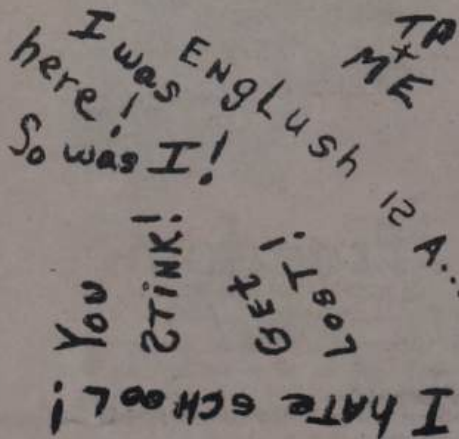 I was
here!
So was I!
ENglush 12 A...
TA
+
ME
You
STiNK!
GEt
LOST!
I hATE SCHOOL!